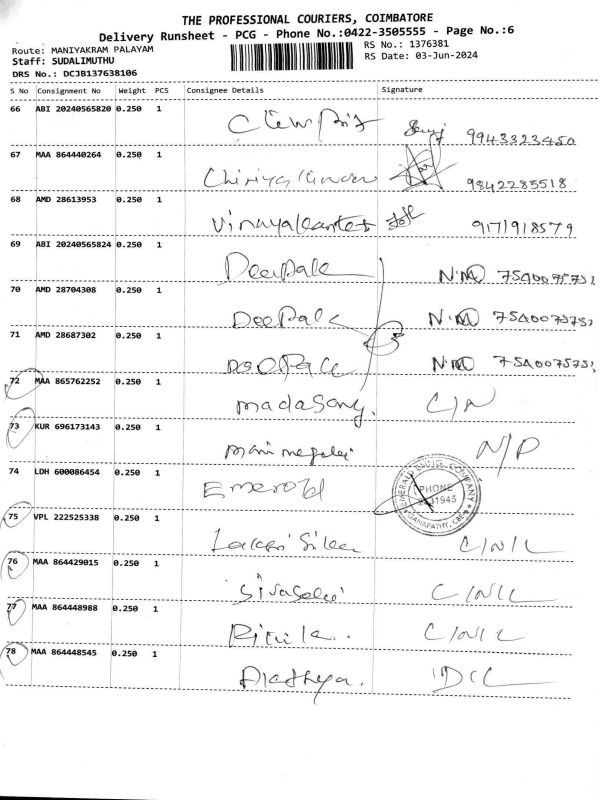 THE PROFESSIONAL COURIERS, COIMBATORE
Delivery Runsheet - PCG - Phone No.:0422-3505555 - Page No.:6
Route: MANIYAKRAM PALAYAM RS No.: 1376381
Staff: SUDALIMUTHU RS Date: 03-Jun-2024
DRS No.: DCJB137638106
S No Consignment No Weight PCS Consignee Details Signature
66 ABI 20240565820 0.250 1 9943323450
67 MAA 864440264 0.250 1 9842285518
68 AMD 28613953 0.250 1 9171918579
69 ABI 20240565824 0.250 1 Deepak N.M 7540075751
70 AMD 28704308 0.250 1 Deepak N.M 7540075751
71 AMD 28687302 0.250 1 Deepak N.M 7540075751
72 MAA 865762252 0.250 1 madasamy. C/N
73 KUR 696173143 0.250 1 N/P
74 LDH 600086454 0.250 1 Emerold EMERALD COMPANY PHONE GANAPATHY, CBE
75 VPL 222525338 0.250 1 C/N/L
76 MAA 864429015 0.250 1 C/N/L
77 MAA 864448988 0.250 1 C/N/L
78 MAA 864448545 0.250 1 DCL